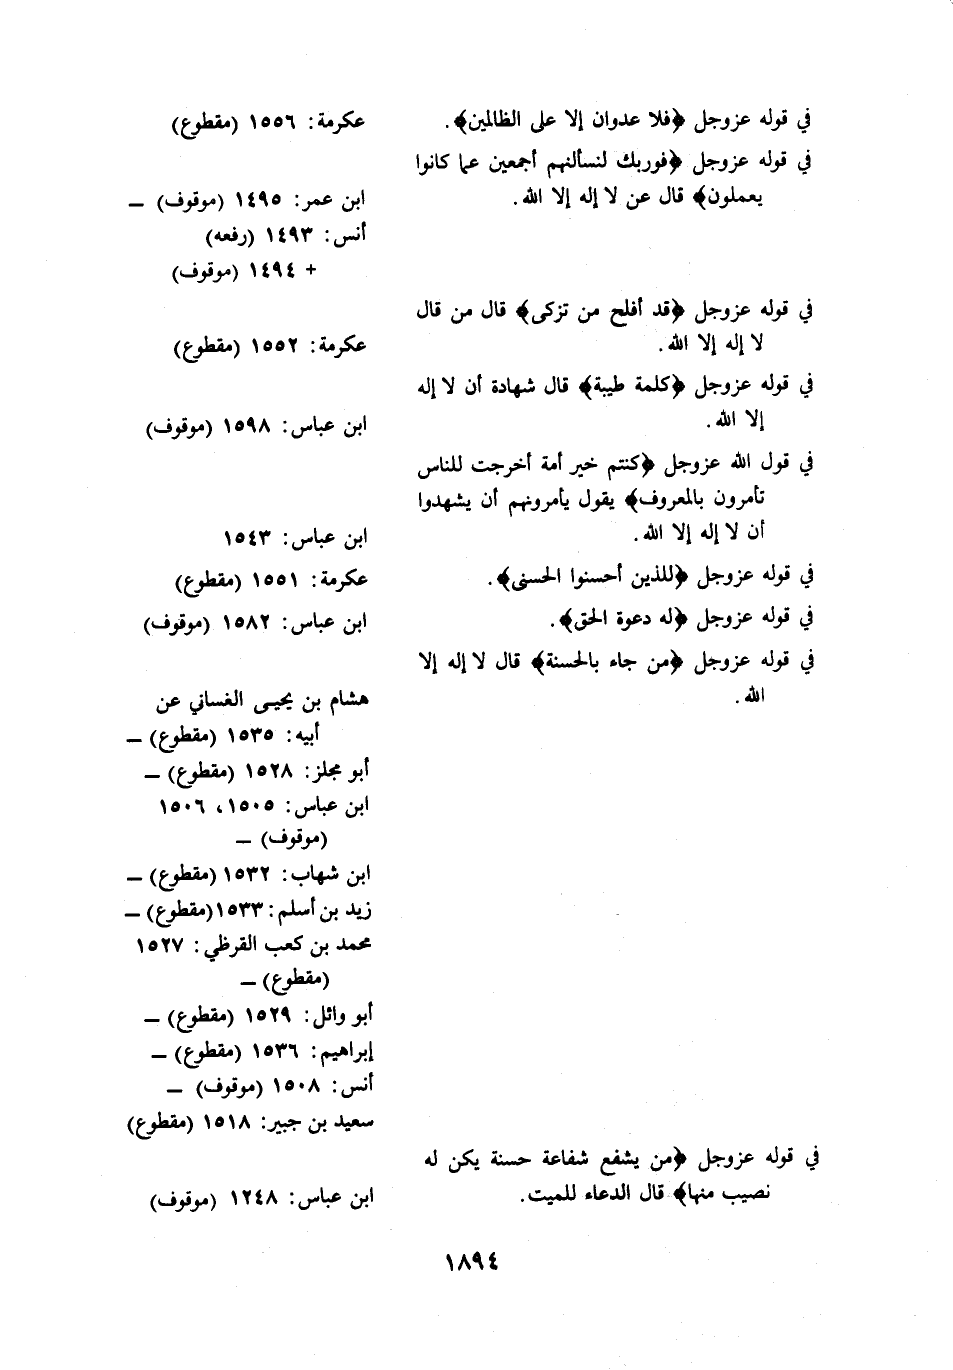 في قوله عزوجل ﴿فلا عدوان إلا على الظالمين﴾. عكرمة: ١٥٥٦ (مقطوع)
في قوله عزوجل ﴿فوربك لنسألنهم أجمعين عما كانوا
يعملون﴾ قال عن لا إله إلا الله. ابن عمر: ١٤٩٥ (موقوف) –
أنس: ١٤٩٣ (رفعه)
+ ١٤٩٤ (موقوف)
في قوله عزوجل ﴿قد أفلح من تزكى﴾ قال من قال
لا إله إلا الله. عكرمة: ١٥٥٢ (مقطوع)
في قوله عزوجل ﴿كلمة طيبة﴾ قال شهادة أن لا إله
إلا الله. ابن عباس: ١٥٩٨ (موقوف)
في قول الله عزوجل ﴿كنتم خير أمة أخرجت للناس
تأمرون بالمعروف﴾ يقول يأمرونهم أن يشهدوا
أن لا إله إلا الله. ابن عباس: ١٥٤٣
في قوله عزوجل ﴿للذين أحسنوا الحسنى﴾. عكرمة: ١٥٥١ (مقطوع)
في قوله عزوجل ﴿له دعوة الحق﴾. ابن عباس: ١٥٨٢ (موقوف)
في قوله عزوجل ﴿من جاء بالحسنة﴾ قال لا إله إلا
الله. هشام بن يحيى الغساني عن
أبيه: ١٥٣٥ (مقطوع) –
أبو مجلز: ١٥٢٨ (مقطوع) –
ابن عباس: ١٥٠٥، ١٥٠٦
(موقوف) –
ابن شهاب: ١٥٣٢ (مقطوع) –
زيد بن أسلم: ١٥٣٣ (مقطوع) –
محمد بن كعب القرظي: ١٥٢٧
(مقطوع) –
أبو وائل: ١٥٢٩ (مقطوع) –
إبراهيم: ١٥٣٦ (مقطوع) –
أنس: ١٥٠٨ (موقوف) –
سعيد بن جبير: ١٥١٨ (مقطوع)
في قوله عزوجل ﴿من يشفع شفاعة حسنة يكن له
نصيب منها﴾ قال الدعاء للميت. ابن عباس: ١٢٤٨ (موقوف)
١٨٩٤